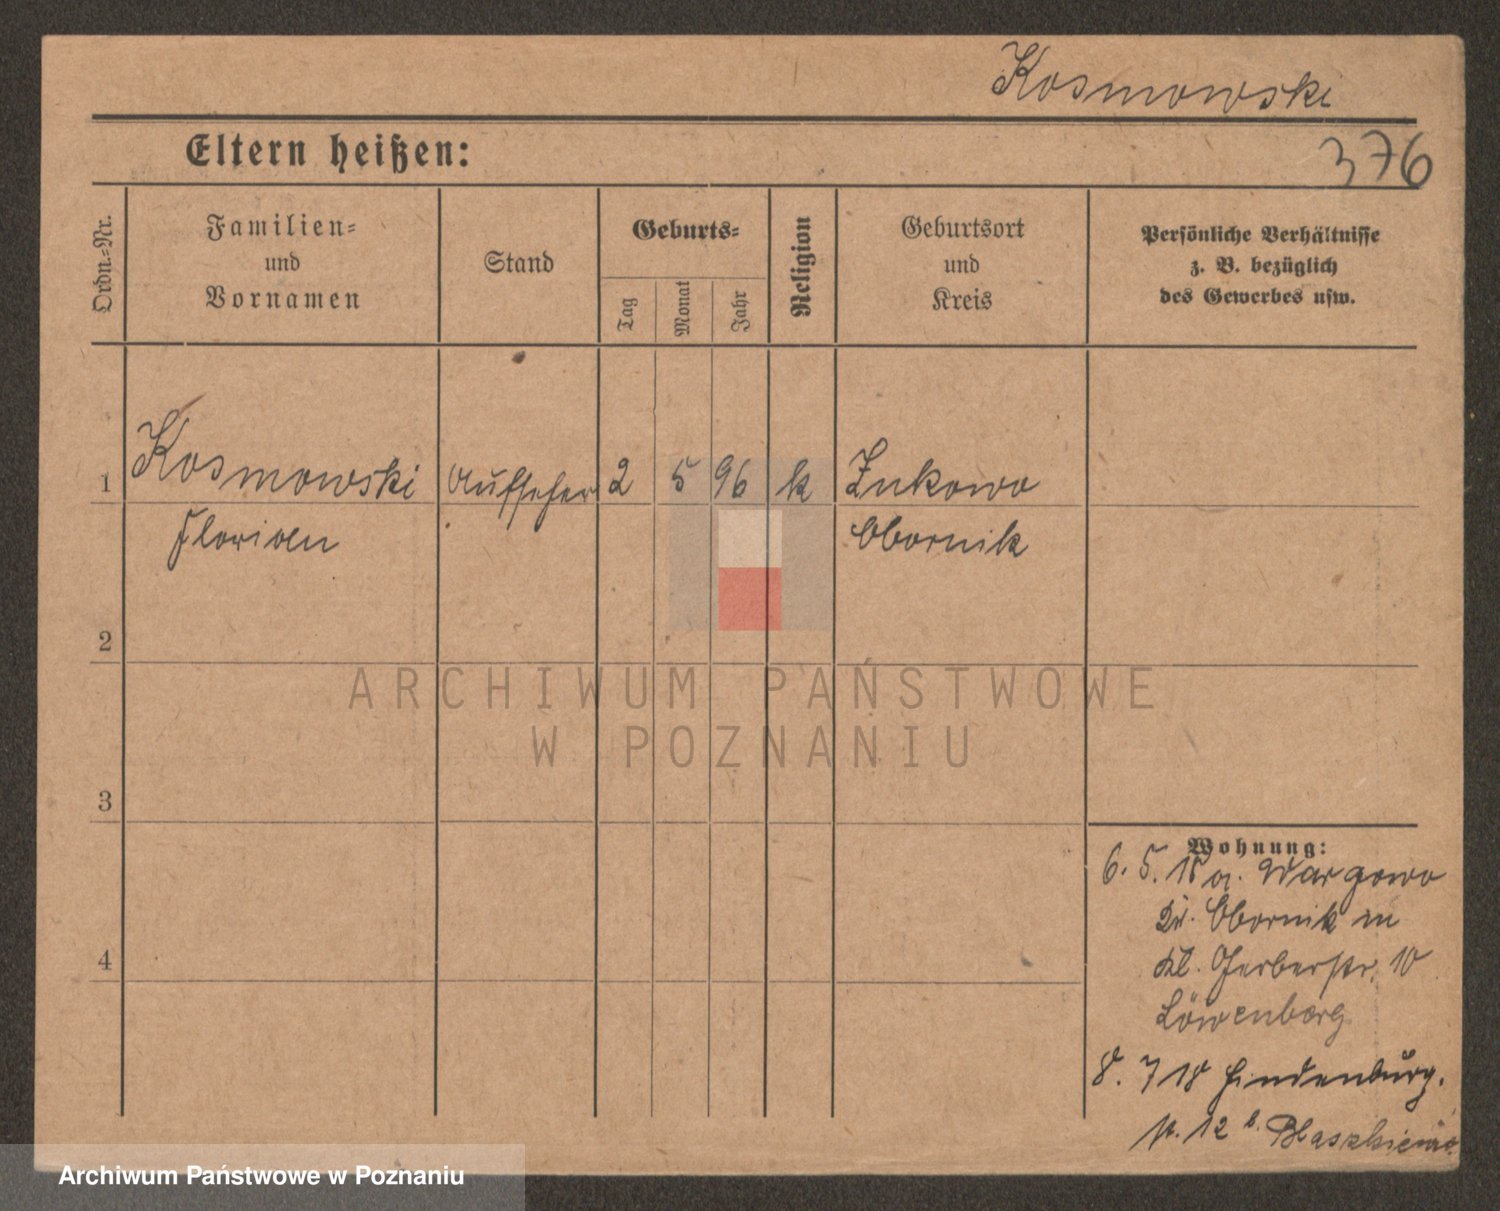 Kosmowski
Eltern heißen:
376
Ordn.=Nr.
Familien=
und
Vornamen
Stand
Geburts=
Tag
Monat
Jahr
Religion
Geburtsort
und
Kreis
Persönliche Verhältnisse
z. B. bezüglich
des Gewerbes usw.
1 Kosmowski Aufseher 2 5 96 k Zukowo
Florian Obornik
2
3
4
ARCHIWUM PAŃSTWOWE
W POZNANIU
Wohnung:
6. 5. 18 a. Wargowo
Kr. Obornik in
Kl. Gerberstr. 10
Löwenberg
8. 7 18 Hindenburg.
12 b.
Archiwum Państwowe w Poznaniu